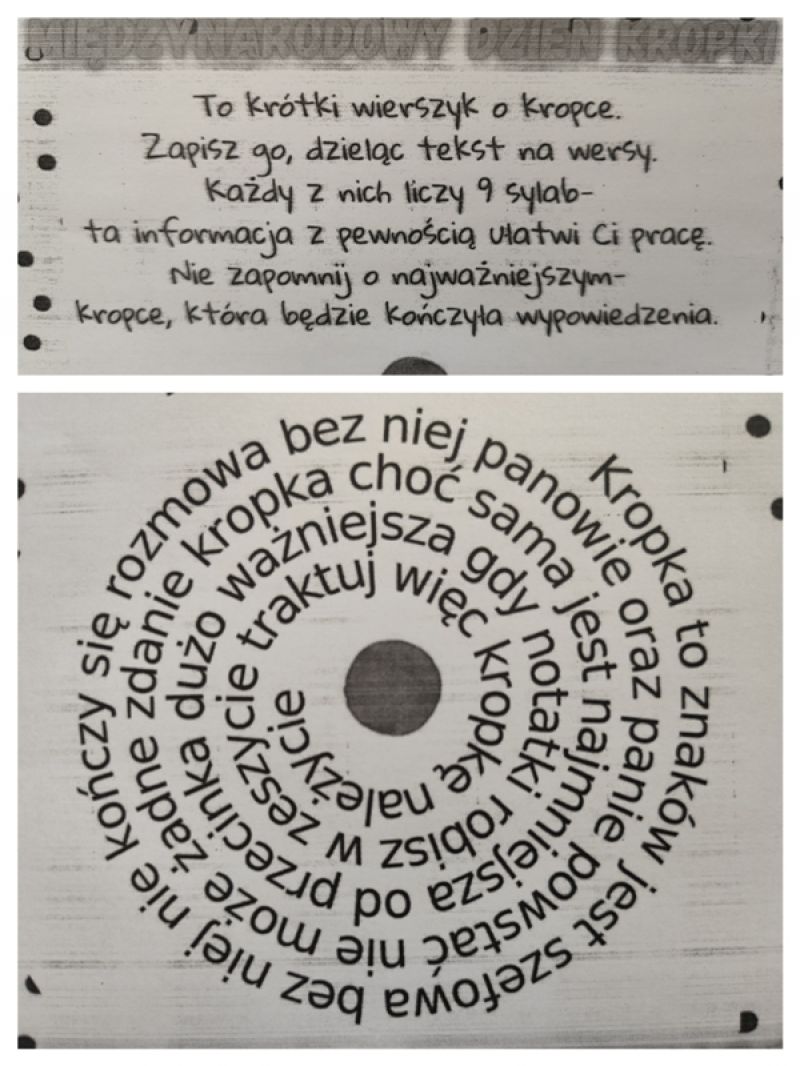 MIĘDZYNARODOWY DZIEŃ KROPKI
To krótki wierszyk o kropce.
Zapisz go, dzieląc tekst na wersy.
Każdy z nich liczy 9 sylab-
ta informacja z pewnością ułatwi Ci pracę.
Nie zapomnij o najważniejszym-
kropce, która będzie kończyła wypowiedzenia.
Kropka to znaków jest szefowa bez niej nie kończy się rozmowa bez niej panowie oraz panie powstać nie może żadne zdanie kropka choć sama jest najmniejsza od przecinka dużo ważniejsza gdy notatki robisz w zeszycie traktuj więc kropkę należycie